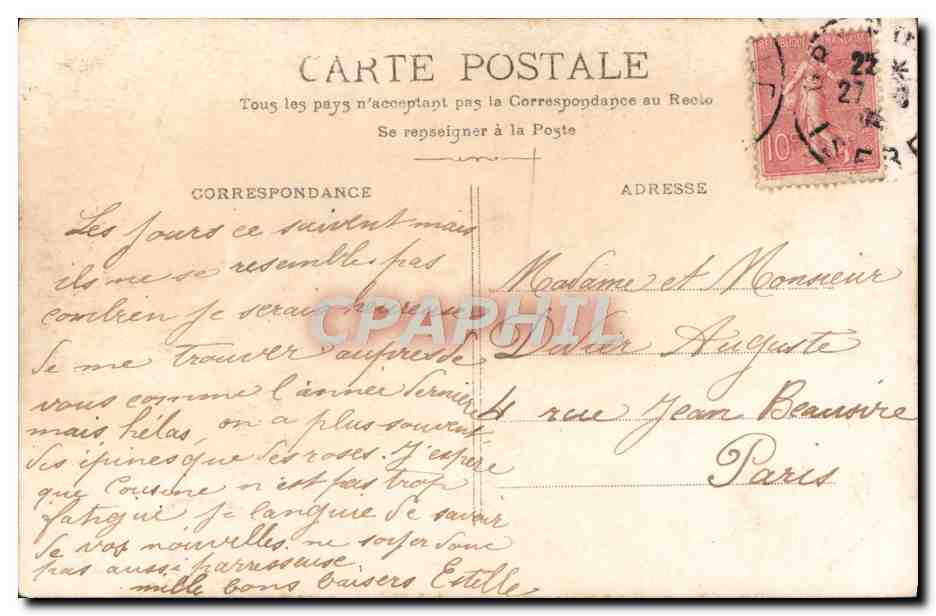 CARTE POSTALE
Tous les pays n'acceptent pas la Correspondance au Recto
Se renseigner à la Poste
CORRESPONDANCE
ADRESSE
REPUBLIQUE FRANÇAISE
10
22
27
CPAPHIL
Les jours ce suivent mais
ils me se resemble pas
combien je serais heureuse
de me trouver aupres de
vous comme l'année dernière
mais hélas, on a plus souvent
des épines que des roses. J'espère
que Cousine n'est pas trop
fatigué je languie de savoir
de vos nouvelles. ne soyer donc
pas aussi parresseuse
mille bons baisers Estelle
Madame et Monsieur
Didier Auguste
4 rue Jean Beausire
Paris